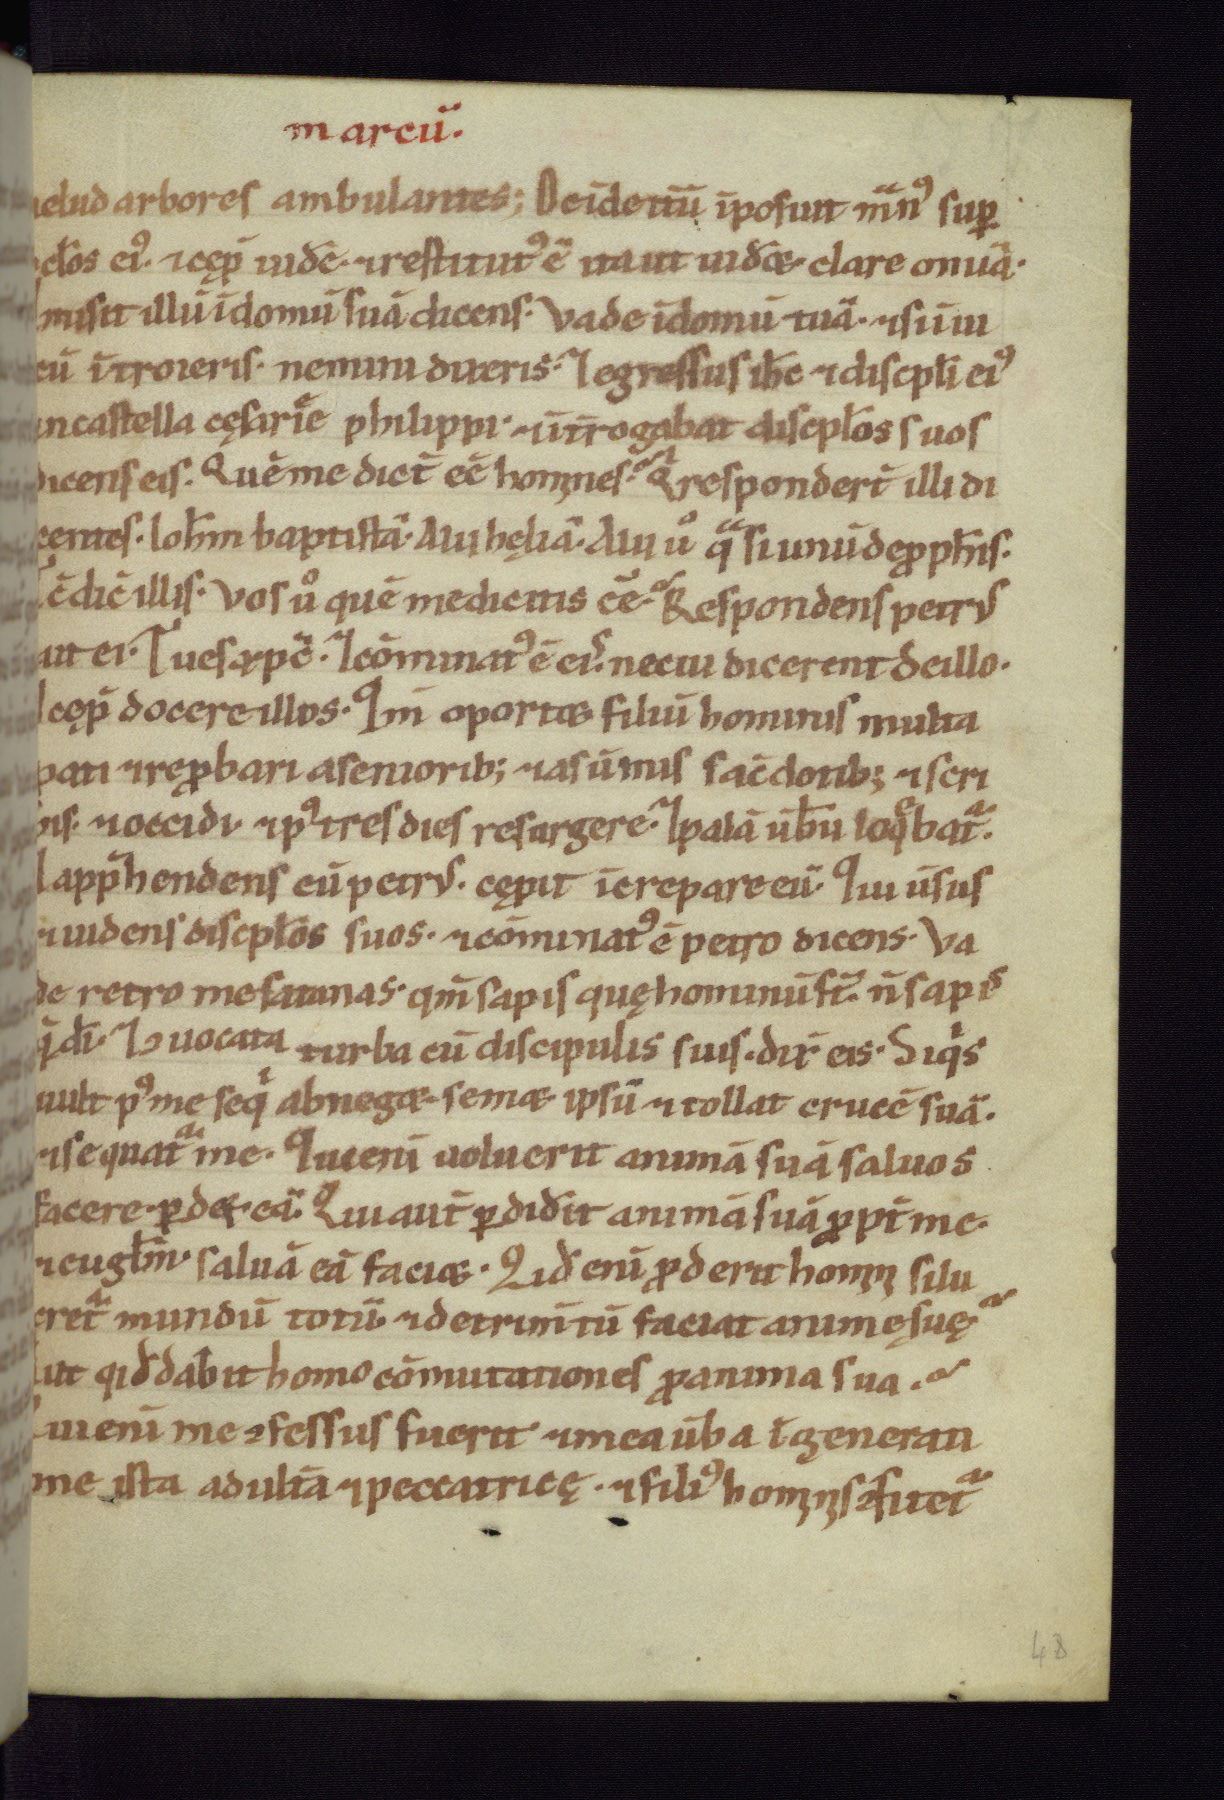 marcū.
uelud arbores ambulantes; Deīdeitū īposuit mn̄ꝰ suꝑ
oclo̅s eiꝰ. ⁊ cęp̄ uidē̅. ⁊ restitutꝰ ē̅ ita ut uidēr& clare om̅ia̅.
misit illū ī domū suā dicens. Vade ī domū tuā. ⁊ si ī ui
cū ītroieris. nemini dixeris. ⁊ egressus ihc̅ ⁊ discpl̅i eiꝰ
in castella cęsarię̅ philippi. ⁊ īt̅rogabat discpl̅os suos
dicens eis. Quē me dict̅ ee̅ homines. Qͥ respondert̅ illi di
centes. Ioh̅m baptistā. Alii hęliā. Alii ů qͣsi unū de ꝓph̅is.
Tc̅ dic̅ illis. Vos ů quē me dicitis ēe. Respondens petrus
ait ei. Tu es xp̅c. ⁊ cōminatꝰ ē eis. ne cui dicerent de illo.
⁊ cęp̅ docere illos. Qm̅ oport& filiū hominis multa
pati ⁊ reꝓbari a seniorib; ⁊ a sūmis sac̅dotib; ⁊ scri
bis. ⁊ occidi. ⁊ pꝰ tres dies resurgere. ⁊ palā ub̅u loq̅bat̅.
⁊ app̅hendens eū petrus. cępit īcrepare eū. Qui ūsus
⁊ uidens discpl̅os suos. ⁊ cōminatꝰ ē petro dicens. Va
de retro me satanas. qm̅ sapis quę hominū st̅. n̅ sapis
q̄ di̅. ⁊ ꝯuocata turba cū discipulis suis. dix̅ eis. Si qͥs
uult pꝰ me seqͥ abneg& sem& ipsū ⁊ tollat crucē suā.
⁊ sequat̅ me. Qui eni̅ uoluerit animā suā saluos
facere. ꝑd&. eā. Qui aut̅ ꝑdid̅it animā suā ꝓpt̅ me.
⁊ eugl̅m. saluā eā faci&. Qid eni̅ ꝓderit homini si lu
cret̅ mundū totū. ⁊ detrim̅tū faciat animę suę
Aut qid dabit homo cōmutationes ꝓ anima sua.
Qui eni̅ me ꝯfessus fuerit ⁊ mea ūba ī generati
one ista adult̅a ⁊ peccatricę. ⁊ filiꝰ hominis ꝯfitet̅
48